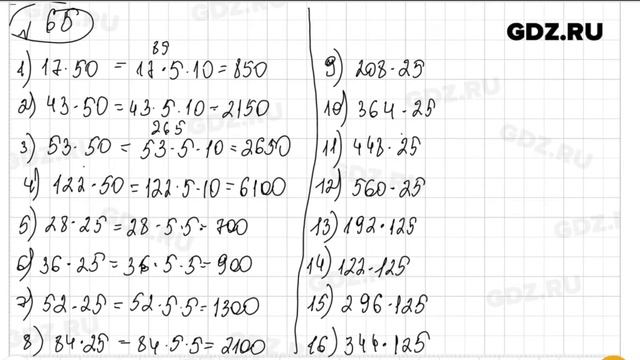 № 65
GDZ.RU
85
1) 17·50 = 17·5·10=850
2) 43·50=43·5·10=2150
265
3) 53·50 = 53·5·10=2650
4) 122·50=122·5·10=6100
5) 28·25=28·5·5=700
6) 36·25=36·5·5=900
7) 52·25=52·5·5=1300
8) 84·25=84·5·5=2100
9) 208·25
10) 364·25
11) 448·25
12) 560·25
13) 192·125
14) 122·125
15) 296·125
16) 344·125
GDZ.RU
GDZ.RU
GDZ.RU
GDZ.RU
GDZ.RU
GDZ.RU